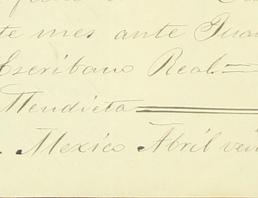 te mes ante Juan
Escribano Real
Mendieta
Mexico Abril vei